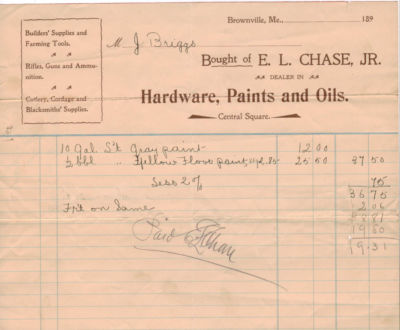 Brownville, Me., 189
Builders' Supplies and
Farming Tools.
Rifles, Guns and Ammu-
nition.
Cutlery, Cordage and
Blacksmiths' Supplies.
M J Briggs
Bought of E. L. CHASE, JR.
DEALER IN
Hardware, Paints and Oils.
Central Square.
10 Gal. St Gray paint 12 00
½ bbl " Yellow Floor paint, 25.50 37 50
Less 2% 75
36 75
Frt on Same 2 06
38 81
19 50
19.31
Paid E L Chase